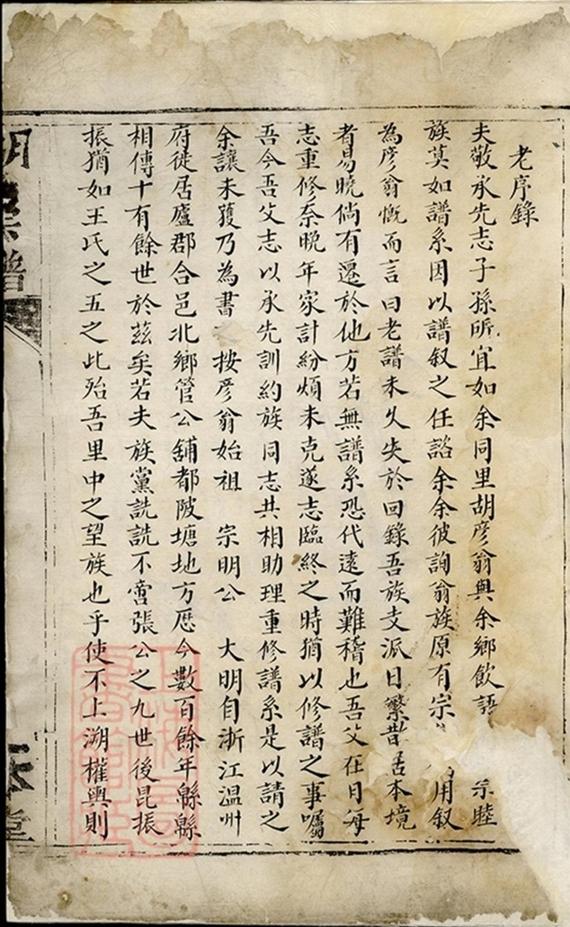 老序錄
夫敬承先志子孫所宜如余同里胡彥翁與余鄉飲語 宗睦
族莫如譜系因以譜叙之任諮余余彼詢翁族原有宗 用叙
為彥翁慨而言曰老譜未久失於回錄吾族支派日繁昔居本境
者易曉倘有遷於他方若無譜系恐代遠而難稽也吾父在日每
志重修奈晚年家計紛煩未克遂志臨終之時猶以修譜之事囑
吾今吾父志以承先訓約族同志共相助理重修譜系是以請之
余讓未獲乃為書之按彥翁始祖 宗明公 大明自浙江溫州
府徙居廬郡合邑北鄉管公舖都陂塘地方歷今數百餘年緜緜
相傳十有餘世於茲矣若夫族黨詵詵不啻張公之九世後昆振
振猶如王氏之五之此殆吾里中之望族也乎使不上溯權輿則
宗譜
堂